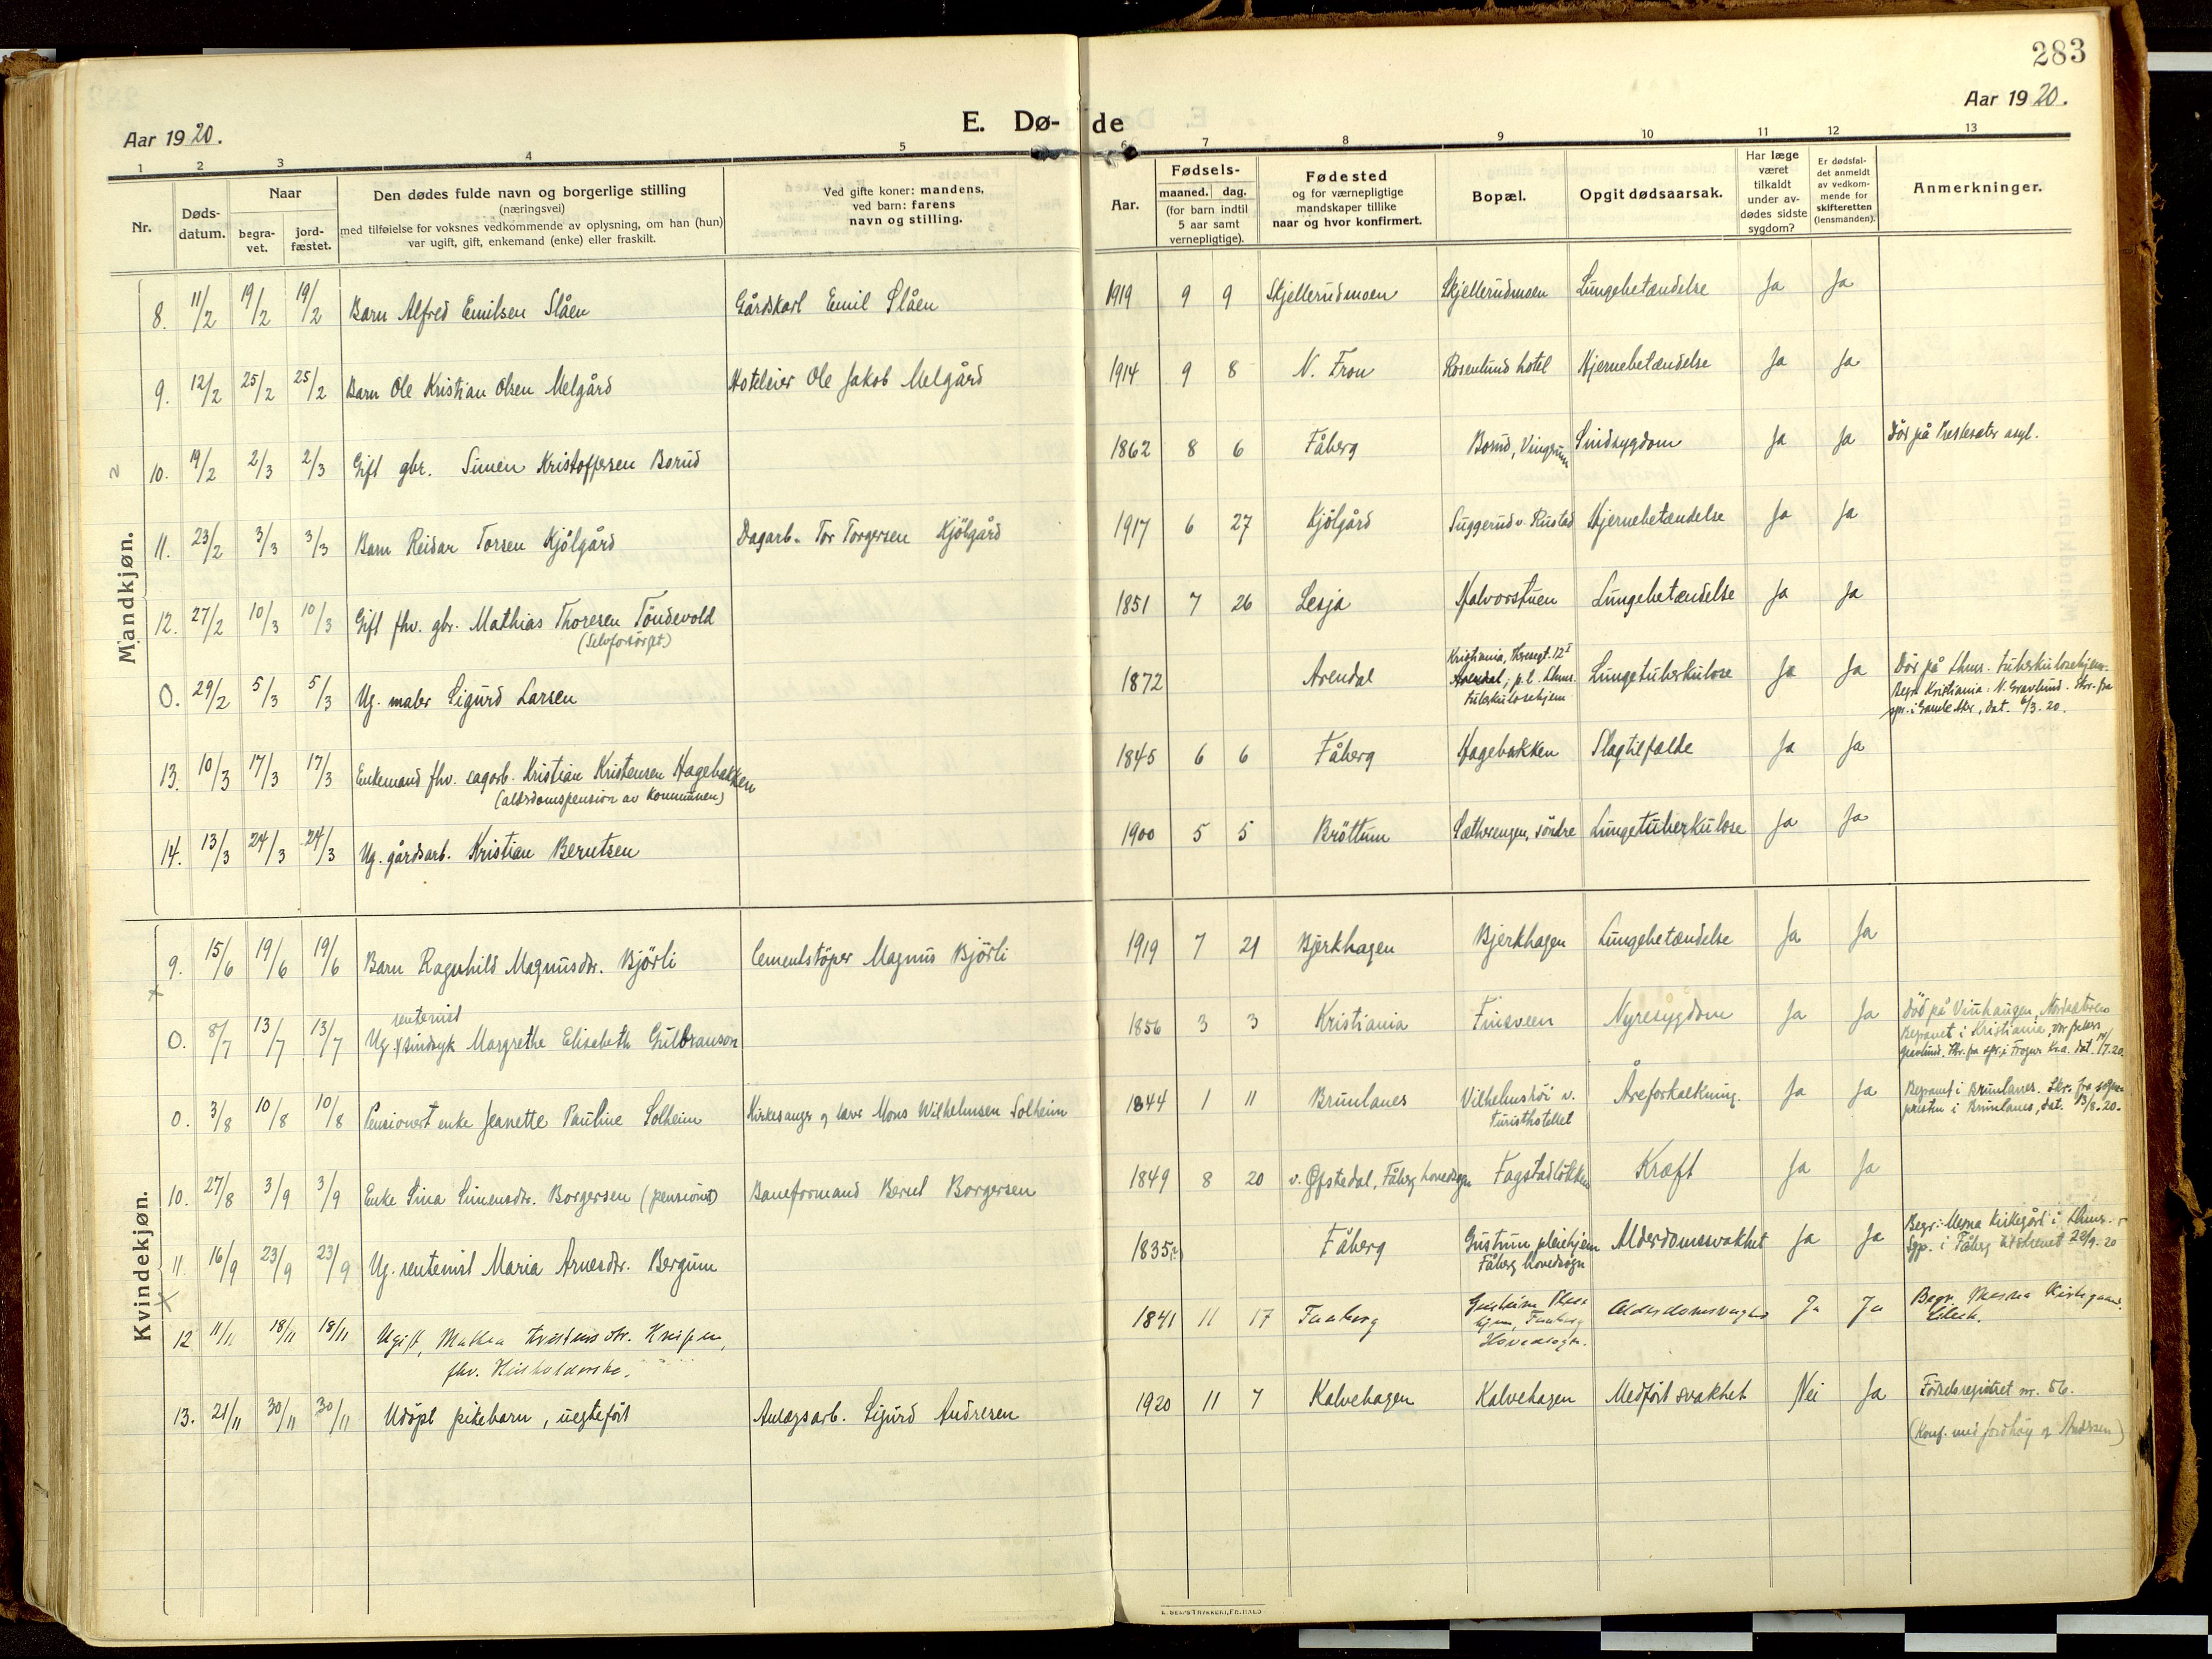 283
Aar 1920.
Aar 1920.
E. Dø-de
1 2 3 4 5 6 7 8 9 10 11 12 13
Nr.
Døds-datum.
Naar
begra-vet.
jord-fæstet.
Den dødes fulde navn og borgerlige stilling
(næringsvei)
med tilføielse for voksnes vedkommende av oplysning, om han (hun)
var ugift, gift, enkemand (enke) eller fraskilt.
Ved gifte koner: mandens,
ved barn: farens
navn og stilling.
Aar.
Fødsels-
maaned. dag.
(for barn indtil
5 aar samt
vernepligtige).
Fødested
og for værnepligtige
mandskaper tillike
naar og hvor konfirmert.
Bopæl.
Opgit dødsaarsak.
Har læge
været
tilkaldt
under av-
dødes sidste
sygdom?
Er dødsfal-
det anmeldt
av vedkom-
mende for
skifteretten
(lensmanden).
Anmerkninger.
Mandkjøn.
8. 11/2 19/2 19/2 Barn Alfred Emilsen Slåen Gårdskarl Emil Slåen 1919 9 9 Skjellerudmoen Skjellerudmoen Lungebetændelse Ja Ja
9. 12/2 25/2 25/2 Barn Ole Kristian Olsen Melgård Hoteleier Ole Jakob Melgård 1914 9 8 N. Fron Rosenlund hotel Hjernebetændelse Ja Ja
10. 19/2 2/3 2/3 Gift gbr. Simen Kristoffersen Borud 1862 8 6 Fåberg Borud, Vingrum Sindsygdom Ja Ja Dör på asyl.
11. 23/2 3/3 3/3 Barn Reidar Torsen Kjölgård Dagarb. Tor Torgersen Kjölgård 1917 6 27 Kjölgård Suggerud v. Rustad Hjernebetændelse Ja Ja
12. 27/2 10/3 10/3 Gift fhv. gbr. Mathias Thoresen Töndevold 1851 7 26 Lesja Halvorstuen Lungebetændelse Ja Ja
(Selvforsörget)
0. 29/2 5/3 5/3 Ug. maler Sigurd Larsen 1872 Arendal Kristiania, 12 I Lungetuberkulose Ja Ja Dör på Lhmr. tuberkulosehjem.
Arendal; p.t. Lhmr. Begr. Kristiania: N. Gravlund. Skr. fra
tuberkulosehjem spr. i Gamle Aker, dat. 6/3. 20.
13. 10/3 17/3 17/3 Enkemand fhv. sagarb. Kristian Kristensen Hagebakken 1845 6 6 Fåberg Hagebakken Slagtilfælde Ja Ja
(aldersdomspension av kommunen)
14. 13/3 24/3 24/3 Ug. gårdsarb. Kristian Berntsen 1900 5 5 Bröttum Sætherengen, söndre Lungetuberkulose Ja Ja
Kvindekjøn.
9. 15/6 19/6 19/6 Barn Ragnhild Magnusdtr. Björli Cementstöper Magnus Bjørli 1919 7 21 Bjerkhagen Bjerkhagen Lungebetændelse Ja Ja
rentenist
0. 8/7 13/7 13/7 Ug. x sindsyk Margrethe Elisabeth Gulbranson 1856 3 3 Kristiania Finsveen Nyresygdom Ja Ja Död på Vinhaugen,
Begravet i Kristiania, vor frelsers
gravlund. Skr. fra spr. i Frogner Kra. dat. 14/7.20.
0. 3/8 10/8 10/8 Pensionert enke Jeanette Pauline Solheim Kirkesanger og lærer Mons Wilhelmsen Solheim 1844 1 11 Brunlanes Vilhelmshöi v. Åreforkalkning Ja Ja Begravet i Brunlanes. Skr. fra sogne-
turisthotellet presten i Brunlanes, dat. 13/8.20.
10. 27/8 3/9 3/9 Enke Sina Simensdtr. Borgersen (pensionist) Baneformand Bernt Borgersen 1849 8 20 v. Øfstedal, Fåberg hovedsogn Fagstadlökken Kræft Ja Ja
11. 16/9 23/9 23/9 Ug. rentenist Maria Arnesdtr. Bergum 1835 Fåberg Gustrum pleiehjem Alderdomssvakhet Ja Ja Begr. Mesna Kirkegård i Lhmr.
Fåberg hovedsogn Spr. i Fåberg utskrevet 20/9.20
12 11/11 18/11 18/11 Ugift, Mathea dtr. 1841 11 17 Faaberg Faaberg Ja Ja Begr. Mesna Kirkegaard.
fhv. Husholderske. Hovedsogn. Lilleh.
13. 21/11 30/11 30/11 Udöpt pikebarn, uegteföit Anlægsarb. Sigurd Andresen 1920 11 7 Kalvehagen Kalvehagen Medföit svakhet Nei Ja Födselsregistret nr. 56.
(Konf. med og Andresen)